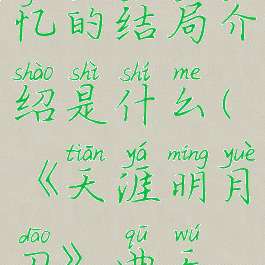 忆的结局介
shào shì shí me
绍是什么(
tiān yá míng yuè
《天涯明月
dāo qū wú
刀》